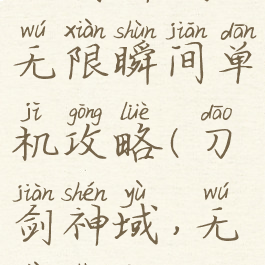 wú xiàn shùn jiān dān
无限瞬间单
jī gōng lüè dāo
机攻略(刀
jiàn shén yù wú
剑神域,无